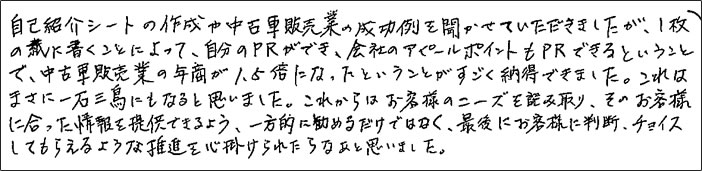 自己紹介シートの作成や中古車販売業の成功例を聞かせていただきましたが、1枚
の紙に書くことによって、自分のPRができ、会社のアピールポイントもPRできるということ
で、中古車販売業の年商が1.5倍になったということがすごく納得できました。これは
まさに一石三鳥にもなると思いました。これからはお客様のニーズを読み取り、そのお客様
に合った情報を提供できるよう、一方的に勧めるだけではなく、最後にお客様に判断、チョイス
してもらえるような推進を心掛けられたらなぁと思いました。